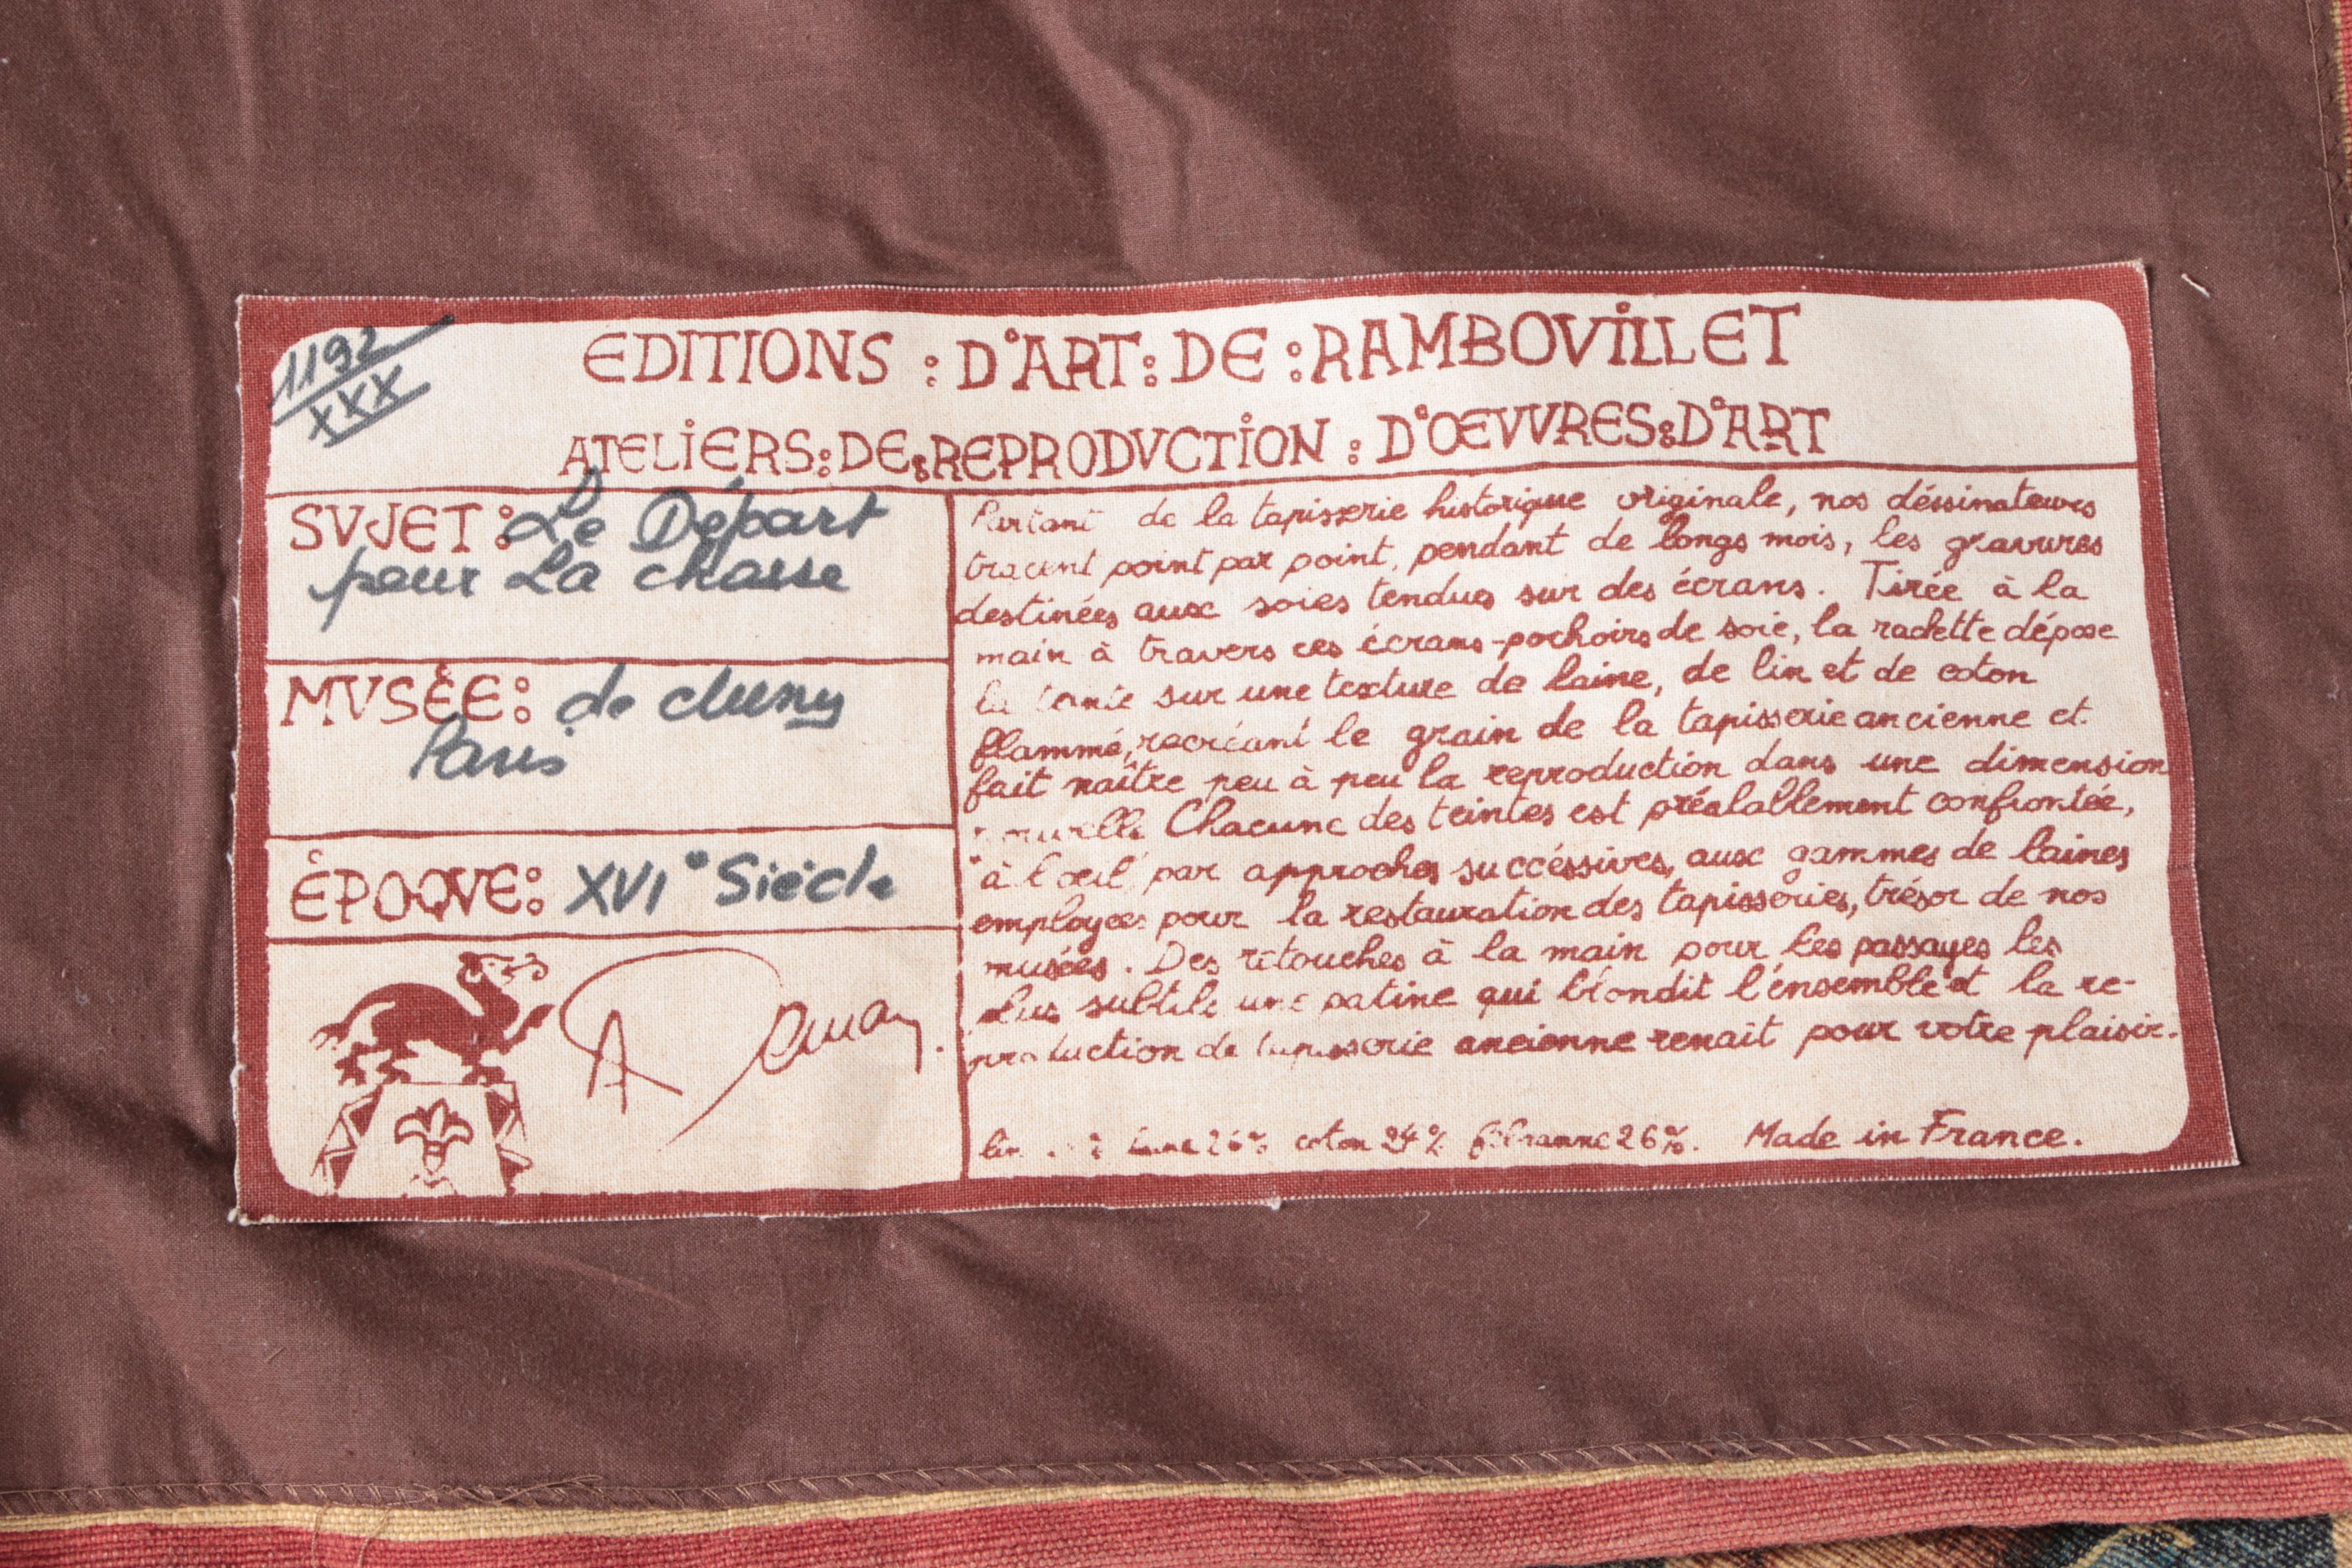 1192
XXX
EDITIONS : D'ART : DE : RAMBOVILLET
ATELIERS : DE : REPRODVCTION : D'ŒVVRES : D'ART
SVJET : Le Départ
pour La chasse
MVSÉE : de cluny
Paris
ÉPOQVE : XVI° Siècle
Partant de la tapisserie historique originale, nos déssinateurs
tracent point par point, pendant de longs mois, les gravures
destinées aux soies tendues sur des écrans. Tirée à la
main à travers ces écrans-pochoirs de soie, la raclette dépose
la teinte sur une texture de laine, de lin et de coton
flammé, recréant le grain de la tapisserie ancienne et
fait naître peu à peu la reproduction dans une dimension
nouvelle Chacune des teintes est préalablement confrontée,
"à l'oeil" par approches succéssives, aux gammes de laines
employées pour la restauration des tapisseries, trésor de nos
musées. Des retouches à la main pour les passages les
plus subtils une patine qui blondit l'énsemble et la re-
production de tapisserie ancienne renait pour votre plaisir.
lin laine 26% coton 24% fibranne 26%. Made in France.